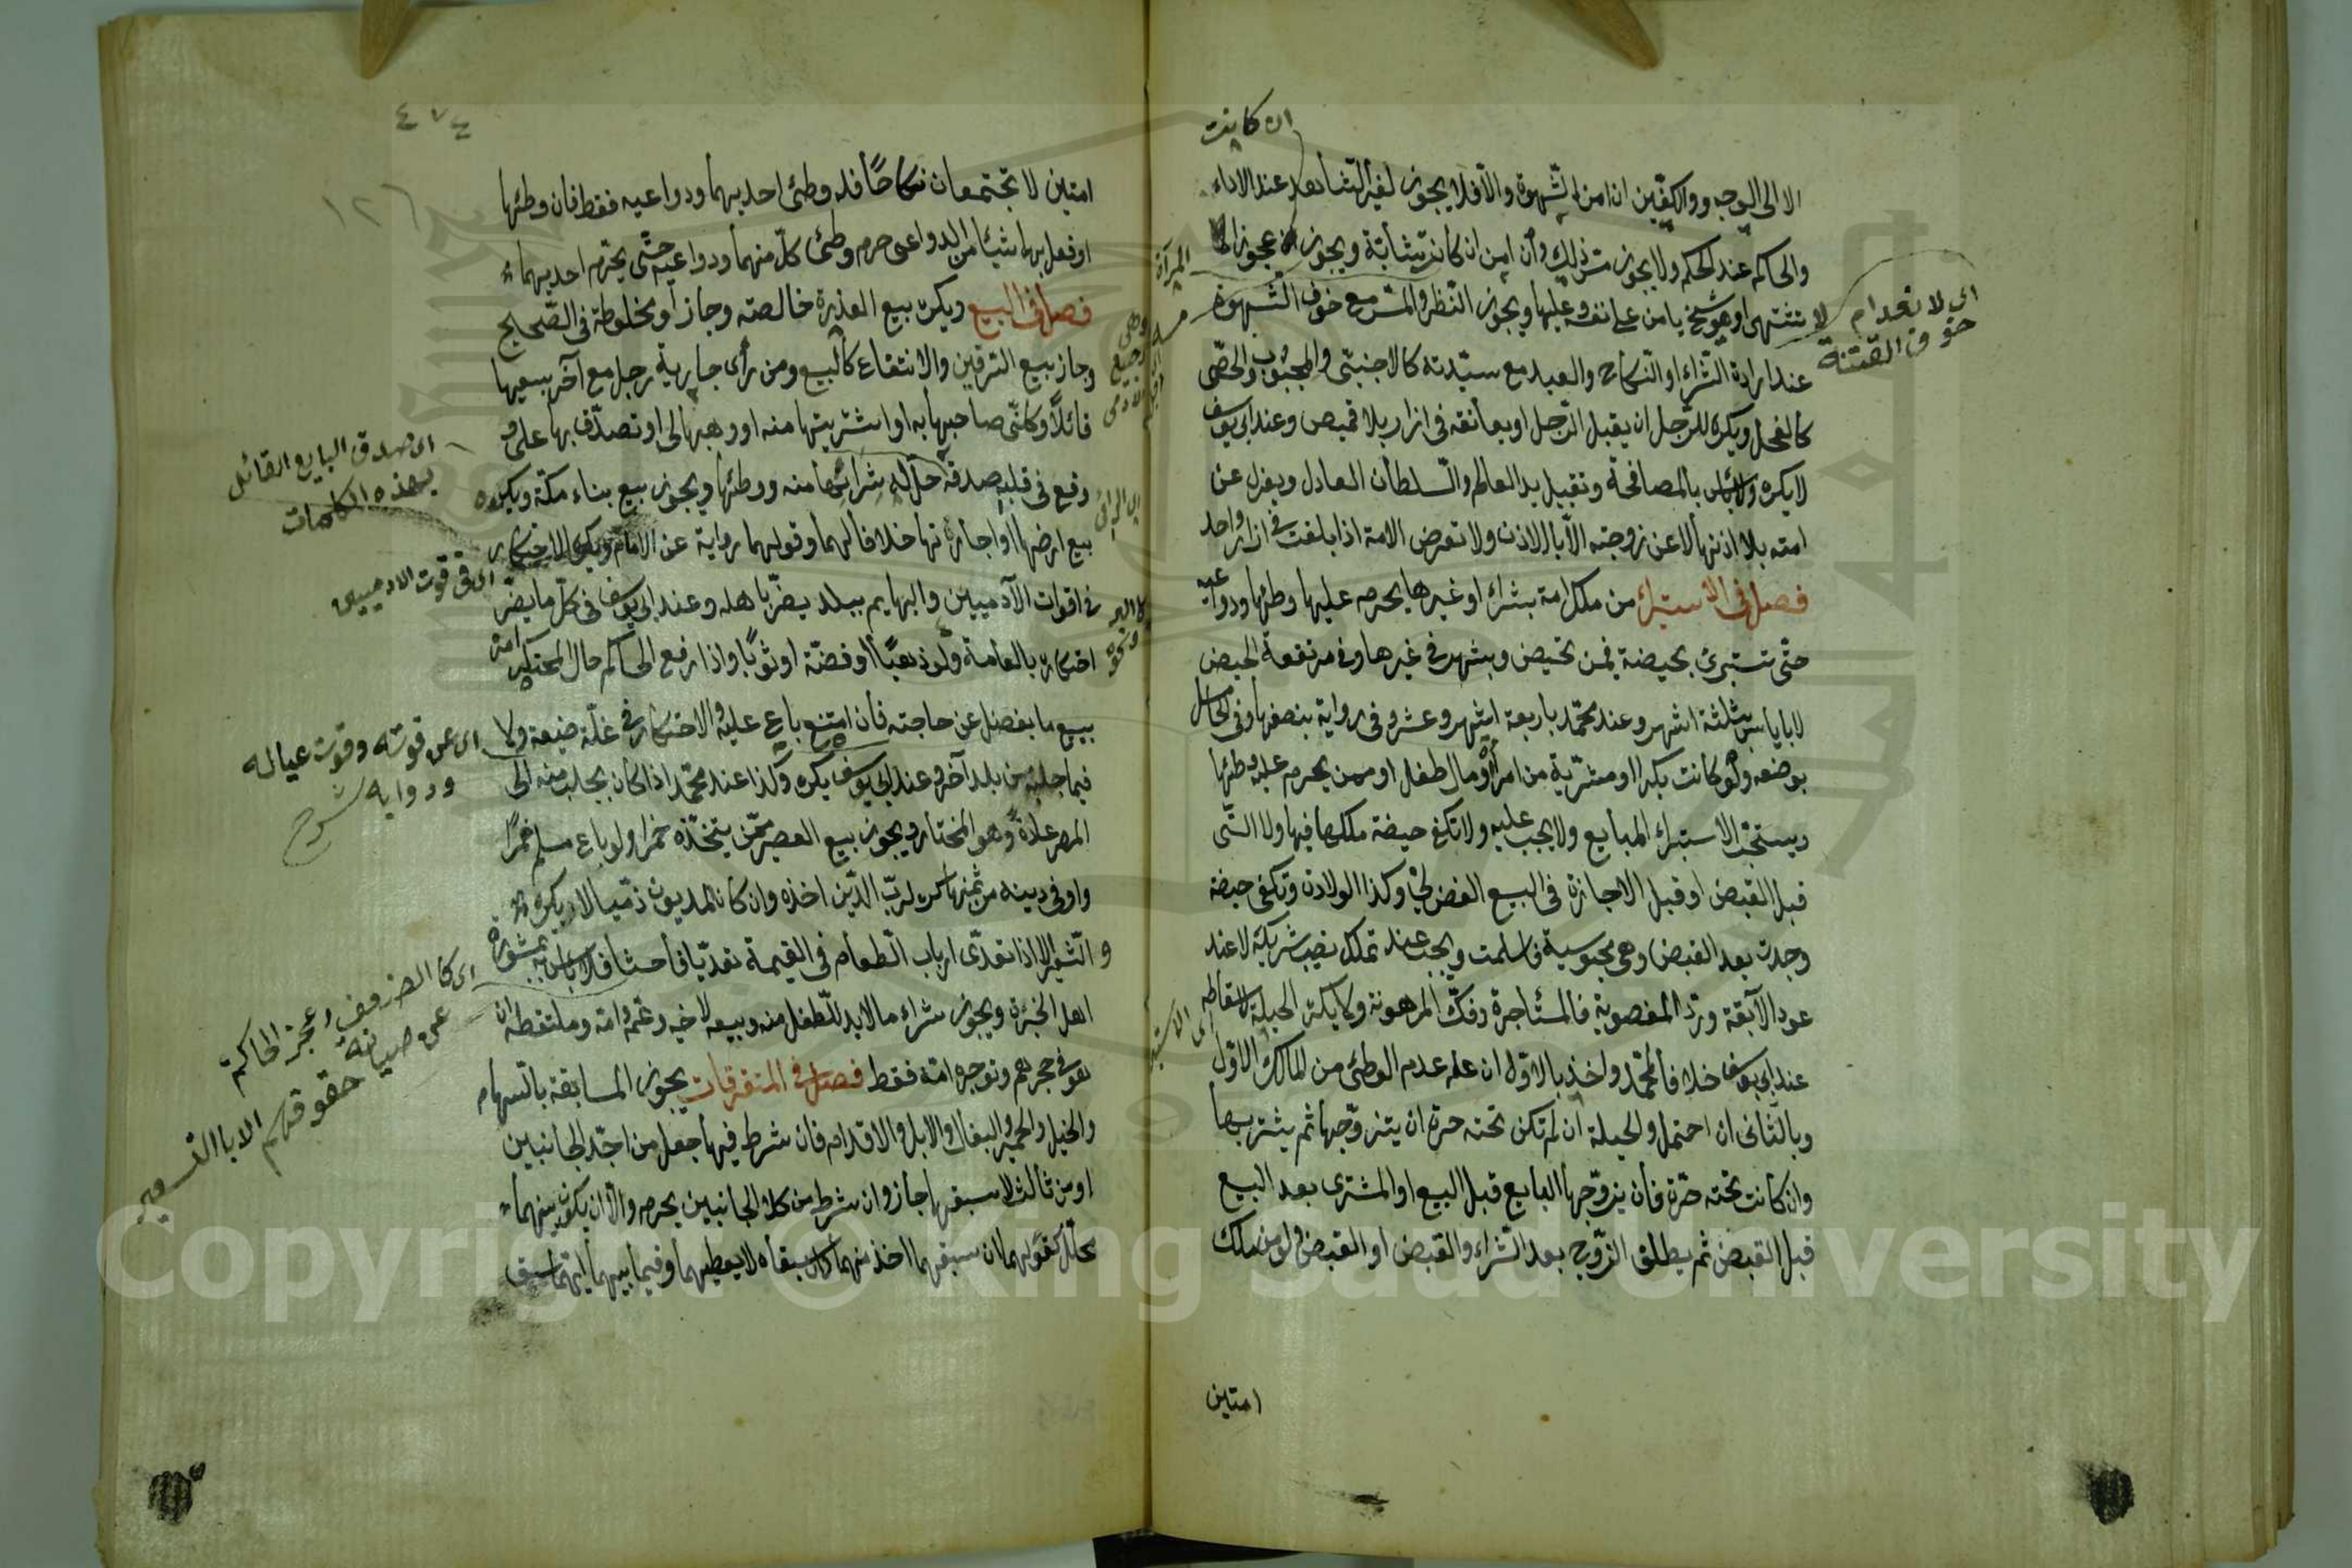 ان كانت
الا الى الوجه والكفين ان امن الشهوة والا فلا يجوز لغير الشاهد عند الاداء
والحاكم عند الحكم ولا يجوز مس ذلك وان امن ان كانت شابة ويجوز عجوزا لا
تشتهى او هو شيخ يامن على نفسه وعليها ويجوز النظر والمس مع خوف الشهوة
عند ارادة الشراء او النكاح والعبد مع سيدته كالاجنبى والمجبوب والخصى
كالفحل ويكره للرجل ان يقبل الرجل او يعانقه فى ازار بلا قميص وعند ابى يوسف
لا يكره ولا باس بالمصافحة وتقبيل يد العالم والسلطان العادل ويعزل عن
امته بلا اذنها لا عن زوجته الا بالاذن ولا تعرض الامة اذا بلغت فى ازار واحد
فصل فى الاستبراء من ملك امة بشراء او غيرها يحرم عليها وطئها ودواعيه
حتى تستبرئ بحيضة فيمن تحيض وبشهر فى غيرها وفى مرتفعة الحيض
لا باياس بثلثة اشهر وعند محمد باربعة اشهر وعشر وفى رواية بنصفها وفى الحامل
بوضعه ولو كانت بكرا او مشترية من امرأة او مال طفل او ممن يحرم عليه وطئها
ويستحب الاستبراء للبايع ولا يجب عليه ولا تكفى حيضة ملكها فيها ولا التى
قبل القبض او قبل الاجازة فى البيع الفضولى وكذا الولادة وتكفى حيضة
وجدت بعد القبض وهى مجوسية فاسلمت ويجب عند تملك نصيب شريكه لا عند
عود الآبقة ورد المغصوبة والمستأجرة وفك المرهونة ولا يكره الحيلة لاسقاطه
عند ابى يوسف خلافا لمحمد واخذ بالاول ان علم عدم الوطئ من المالك الاول
وبالثانى ان احتمل والحيلة ان لم تكن تحته حرة ان يتزوجها ثم يشتريها
وان كانت تحته حرة فان يزوجها البايع قبل البيع او المشترى بعد البيع
قبل القبض ثم يطلق الزوج بعد الشراء والقبض او القبض ومن ملك
امتين
اى لانعدام
خوف الفتنة
المرأة
٤٧٤
١٢٦
امتين لا تجتمعان نكاحا فله وطئ احديهما ودواعيه فقط فان وطئها
او فعل بهما شيئا من الدواعى حرم وطئ كل منهما ودواعيه حتى يحرم احديهما
فصل فى البيع ويكره بيع العذرة خالصة وجاز لو مخلوطة فى الصحيح
وجاز بيع السرقين والانتفاع كالبيع ومن رأى جارية رجل مع آخر يبيعها
قائلا وكلنى صاحبها به او اشتريتها منه او وهبها لى او تصدق بها على و
وقع فى قلبه صدقه حل له شرائها منه ووطئها ويجوز بيع بناء مكة ويكره
بيع ارضها واجارتها خلافا لهما وقولهما رواية عن الامام ويكره الاحتكار
فى اقوات الآدميين والبهايم ببلد يضر باهله وعند ابى يوسف فى كل ما يضر
احتكاره بالعامة ولو ذهبا او فضة او ثوبا واذا رفع الى الحاكم حال المحتكر امره
ببيع ما يفضل عن حاجته فان امتنع باع عليه ولا احتكار فى غلة ضيعته ولا
فيما جلبه من بلد آخر وعند ابى يوسف يكره وكذا عند محمد اذا كان يجلب منه الى
المصر عادة وهو المختار ويجوز بيع العصير ممن يتخذه خمرا ولو باع مسلم خمرا
واوفى دينه من ثمنها كره لرب الدين اخذه وان كان المديون ذميا لا يكره
والتسعير الا اذا تعدى ارباب الطعام فى القيمة تعديا فاحشا فلا باس به بمشورة
اهل الخبرة ويجوز شراء ما لا بد للطفل منه وبيعه لاخيه وعمه وامه وملتقطه ان
هو فى حجرهم وتوجره امه فقط فصل فى المتفرقات يجوز المسابقة بالسهام
والخيل والحمير والبغال والابل والاقدام فان شرط فيها جعل من احد الجانبين
او من ثالث لاسبقها جاز وان شرط من كلا الجانبين يحرم والا ان يكون بينهما
محلل كفؤ لهما ان سبقهما اخذ منهما وان سبقاه لا يعطيهما وفيما بينهما ايهما سبق
اى صدق البايع القائل
بهذه الكلمات
اى فى قوت الادميين
اى عن قوته وقوت عياله
ودوابه شرح
عجز الحاكم
عن صيانة
حقوقهم الا بالتسعير
Copyright © King Saud University